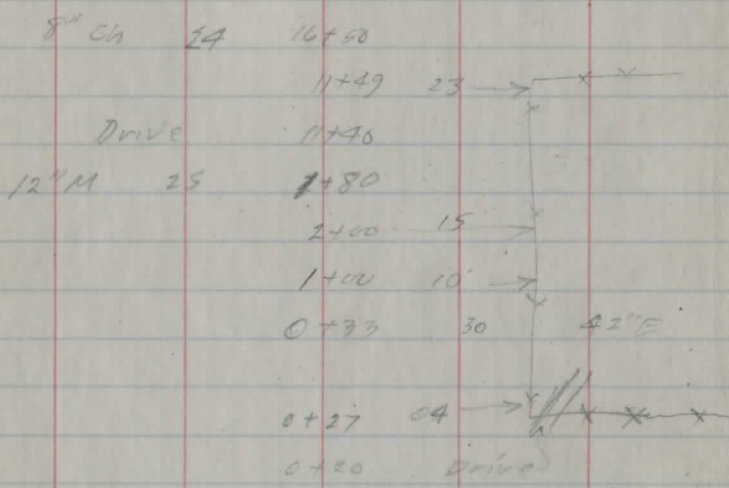 8" Ch 24 16+50
11+49 23
Drive 11+46
12" M 25 1+80
2+00 15
1+00 10
0+33 30 42" E
0+27 04
0+20 Drive